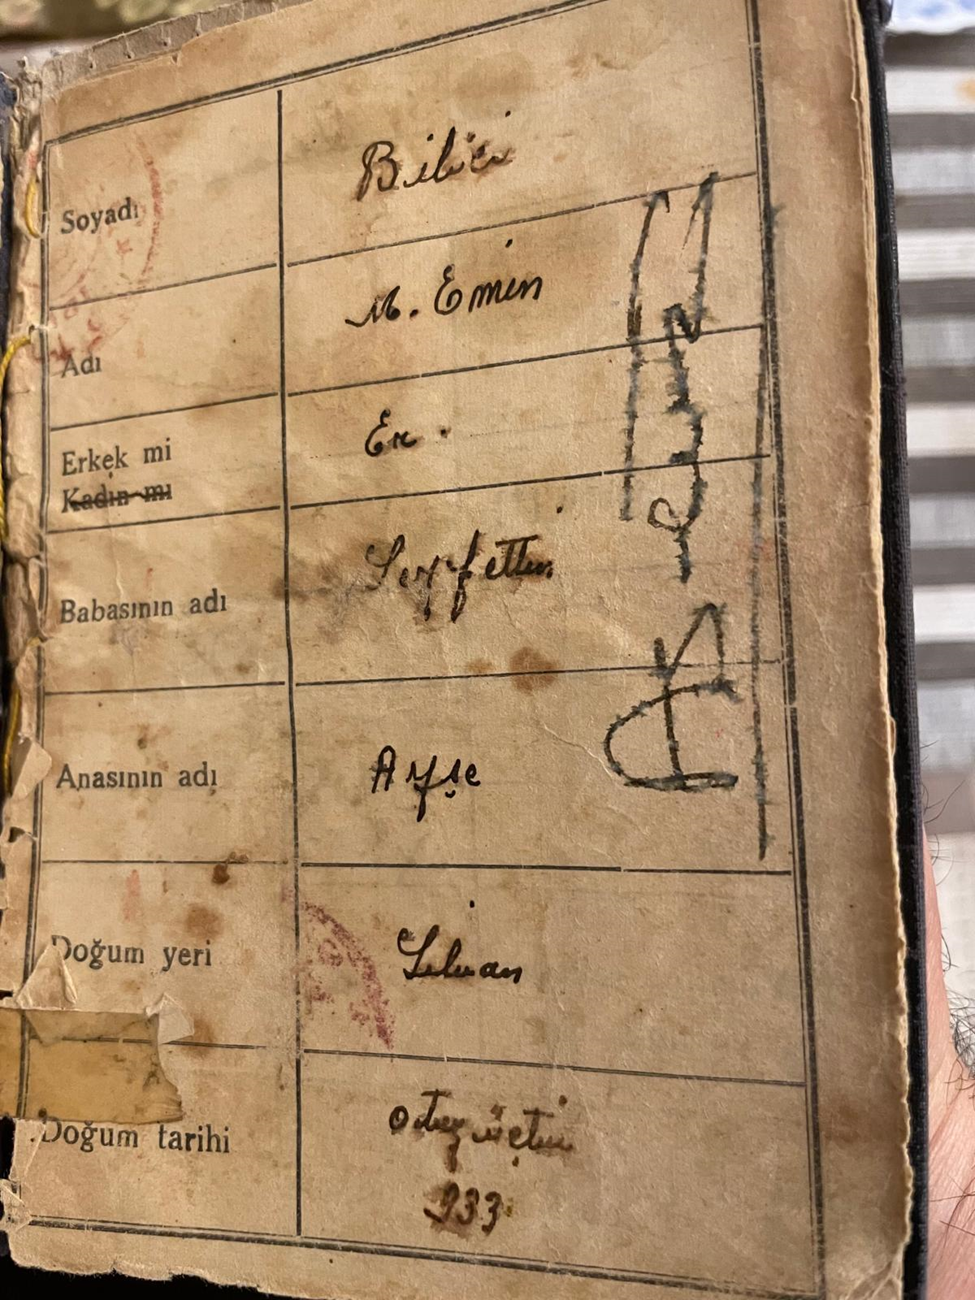 Soyadı Bilici
Adı M. Emin
Erkek mi Er.
Kadın mı
Babasının adı Seyfettin
Anasının adı Ayşe
Doğum yeri Silvan
Doğum tarihi otuz üçtür
933